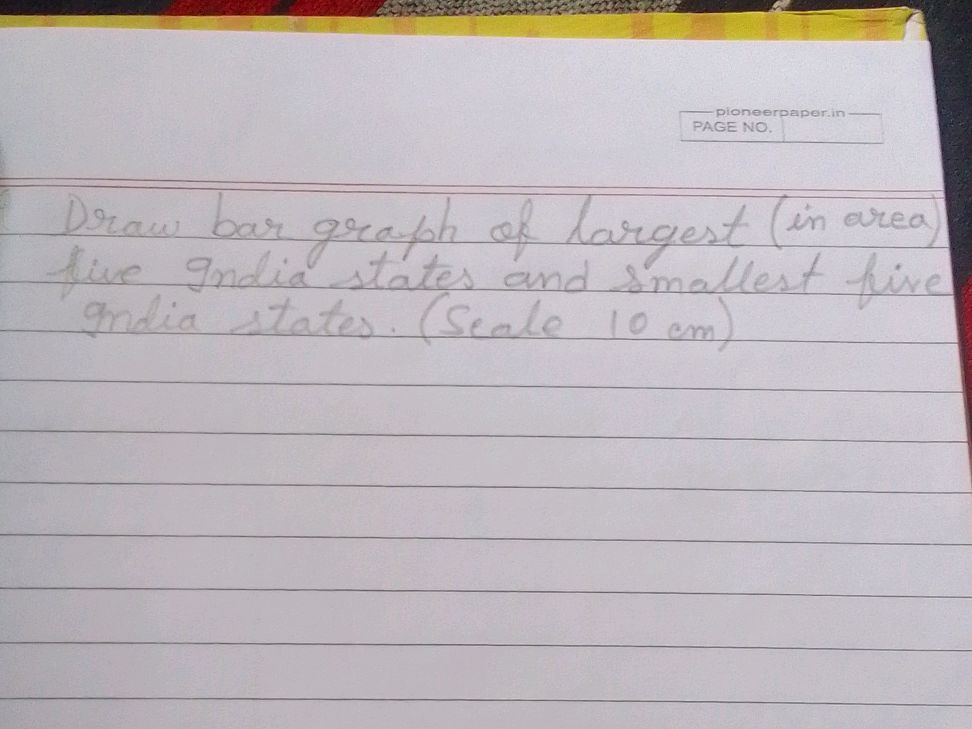 pioneerpaper.in
PAGE NO.
Draw bar graph of largest (in area)
five India states and smallest five
India states. (Scale 10 cm)